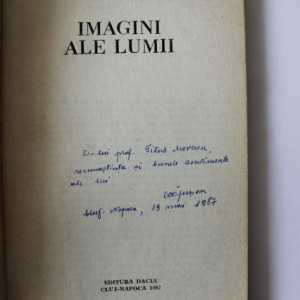 IMAGINI
ALE LUMII
D-lui prof. Titus Moraru,
recunoștința și bunele sentimente
ale lui
Cluj-Napoca, 19 mai 1987
EDITURA DACIA
CLUJ-NAPOCA 1987